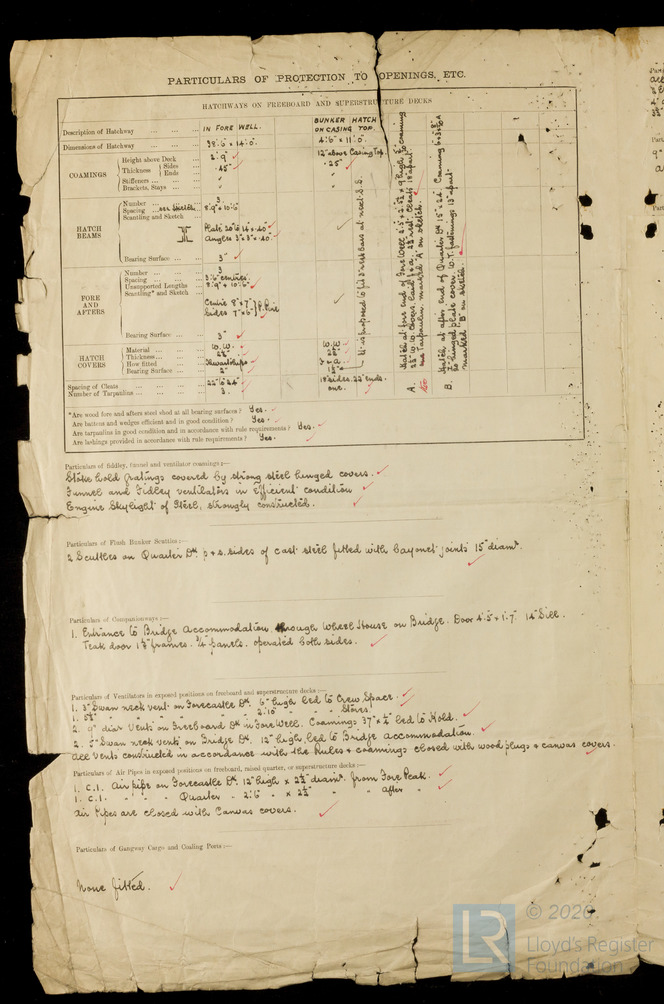 PARTICULARS OF PROTECTION TO OPENINGS, ETC.
HATCHWAYS ON FREEBOARD AND SUPERSTRUCTURE DECKS
Description of Hatchway ... IN FORE WELL. BUNKER HATCH ON CASING TOP.
Dimensions of Hatchway ... 38'.6" × 14'.0". 4'.6" × 11'.0".
COAMINGS
Height above Deck ... 3'.9" 12" above Casing Top.
Thickness { Sides ... .45" .25"
Ends
Stiffeners ...
Brackets, Stays ...
HATCH BEAMS
Number ... 3.
Spacing ... see sketch 8'.9" × 10'.6"
Scantling and Sketch
Plate 20" to 14" × .40"
Angles 3" × 3" × .40"
Bearing Surface ... 3"
FORE AND AFTERS
Number ... 3
Spacing ... 3'.6" centres.
Unsupported Lengths 8'.9" × 10'.6"
Scantling* and Sketch
Centre 8" × 7" } P. Pine
Sides 7" × 6"
Bearing Surface ... 3"
HATCH COVERS
Material ... W.W. W.W.
Thickness ... 2½" 2½"
How fitted Thwartships F & A
Bearing Surface ... 2"
Spacing of Cleats ... 22" to 24" 18" sides. 22" ends.
Number of Tarpaulins ... 3. one.
It is proposed to fit 3 rest bars at next S.S.
A. Hatch at fore end of Fore Well
W.W. covers laid F & A. 2½" rest. Cleats 18" apart
one Tarpaulin marked "A" on sketch.
B. Hatch at after end of Quarter Dk
hinged plate cover W.T. fastenings 13" apart
marked "B" on sketch.
*Are wood fore and afters steel shod at all bearing surfaces? Yes.
Are battens and wedges efficient and in good condition? Yes.
Are tarpaulins in good condition and in accordance with rule requirements? Yes.
Are lashings provided in accordance with rule requirements? Yes.
Particulars of fiddley, funnel and ventilator coamings:—
Stoke hold gratings covered by strong steel hinged covers.
Funnel and Fidley ventilators in Efficient condition
Engine Skylight of Steel, strongly constructed.
Particulars of Flush Bunker Scuttles:—
2 Scuttles on Quarter Dk p & s. sides of cast steel fitted with bayonet joints 15" diamr.
Particulars of Companionways:—
1. Entrance to Bridge Accommodation through Wheel House on Bridge. Door 4'.5" × 1'.7" 14" Sill.
Teak door 1⅜" frames. ¾" panels. operated both sides.
Particulars of Ventilators in exposed positions on freeboard and superstructure decks:—
1. 3" Swan neck vent. on Forecastle Dk 6" high led to Crew Space.
1. 5½" " " " " " 2'.10" " " " Stores.
2. 9" diar Vents on Freeboard Dk in Fore Well. Coamings 37" × ½" led to Hold.
2. 3" Swan neck vents on Bridge Dk 12" high led to Bridge Accommodation.
All vents constructed in accordance with the Rules & coamings closed with wood plugs & canvas covers.
Particulars of Air Pipes in exposed positions on freeboard, raised quarter, or superstructure decks:—
1. C.I. Air pipe on Forecastle Dk. 12" high × 2½" diamr. from Fore Peak.
1. C.I. " " " Quarter " 2'.6" " × 2½" " " After "
Air Pipes are closed with Canvas covers.
Particulars of Gangway Cargo and Coaling Ports:—
None fitted.
LR
© 2020
Lloyd's Register
Foundation